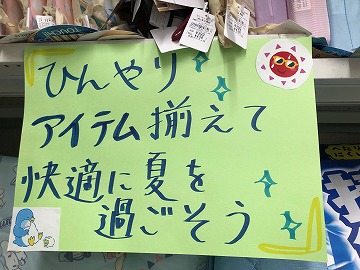 ひんやり
アイテム揃えて
快適に夏を
過ごそう